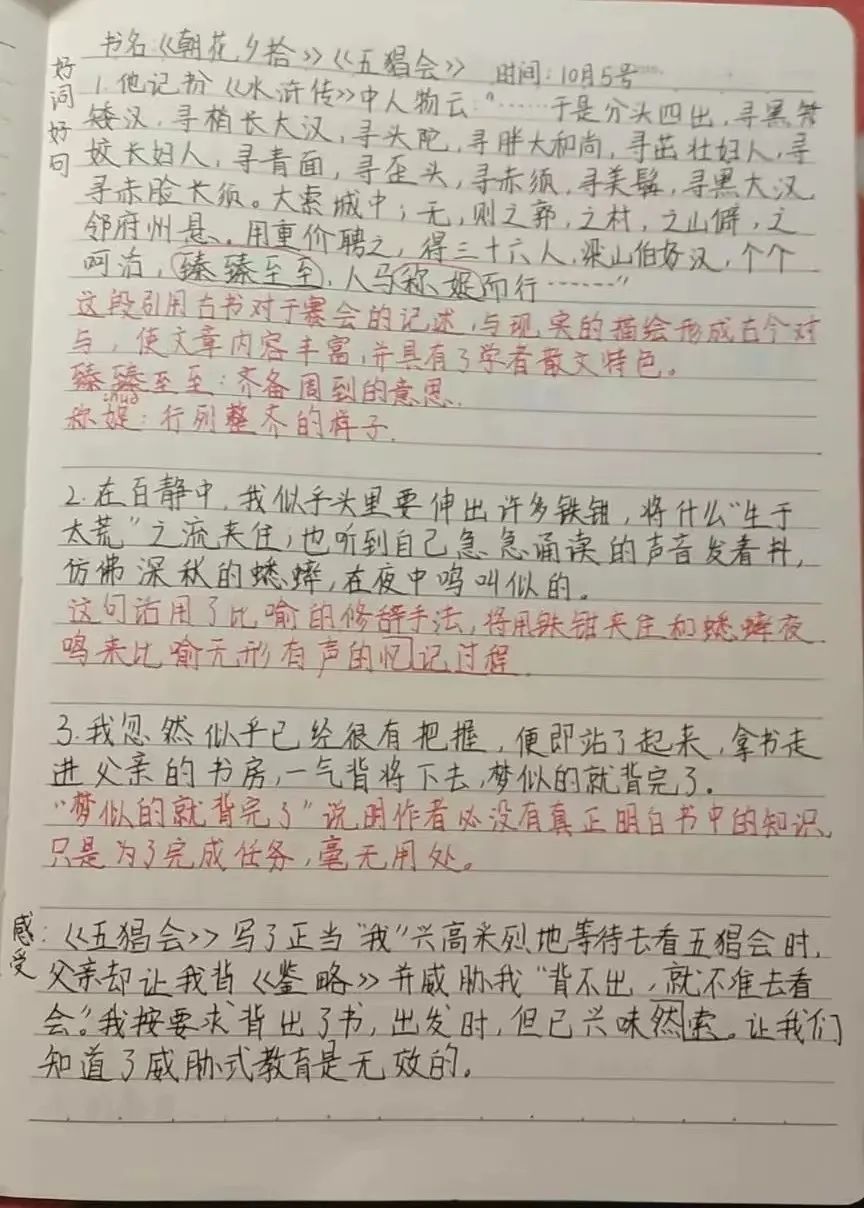 书名《朝花夕拾》《五猖会》 时间：10月5号
好词好句
1.他记扮《水浒传》中人物云：“……于是分头四出，寻黑矮
矮汉，寻梢长大汉，寻头陀，寻胖大和尚，寻茁壮妇人，寻
姣长妇人，寻青面，寻歪头，寻赤须，寻美髯，寻黑大汉，
寻赤脸长须。大索城中；无，则之郭，之村，之山僻，之
邻府州县。用重价聘之，得三十六人，梁山伯好汉，个个
呵活，臻臻至至，人马称娖而行……”
这段引用古书对于赛会的记述，与现实的描绘形成古今对
与，使文章内容丰富，并具有了学者散文特色。
臻臻至至：齐备周到的意思.
称娖：行列整齐的样子.
2.在百静中，我似乎头里要伸出许多铁钳，将什么“生于
太荒”之流夹住；也听到自己急急诵读的声音发着抖，
仿佛深秋的蟋蟀，在夜中鸣叫似的。
这句话用了比喻的修辞手法，将用铁钳夹住和蟋蟀夜
鸣来比喻无形有声的忆记过程.
3.我忽然似乎已经很有把握，便即站了起来，拿书走
进父亲的书房，一气背将下去，梦似的就背完了。
“梦似的就背完了”说明作者必没有真正明白书中的知识，
只是为了完成任务，毫无用处。
感受
：《五猖会》写了正当“我”兴高采烈地等待去看五猖会时，
父亲却让我背《鉴略》并威胁我“背不出，就不准去看
会”。我按要求背出了书，出发时，但已兴味然索。让我们
知道了威胁式教育是无效的。